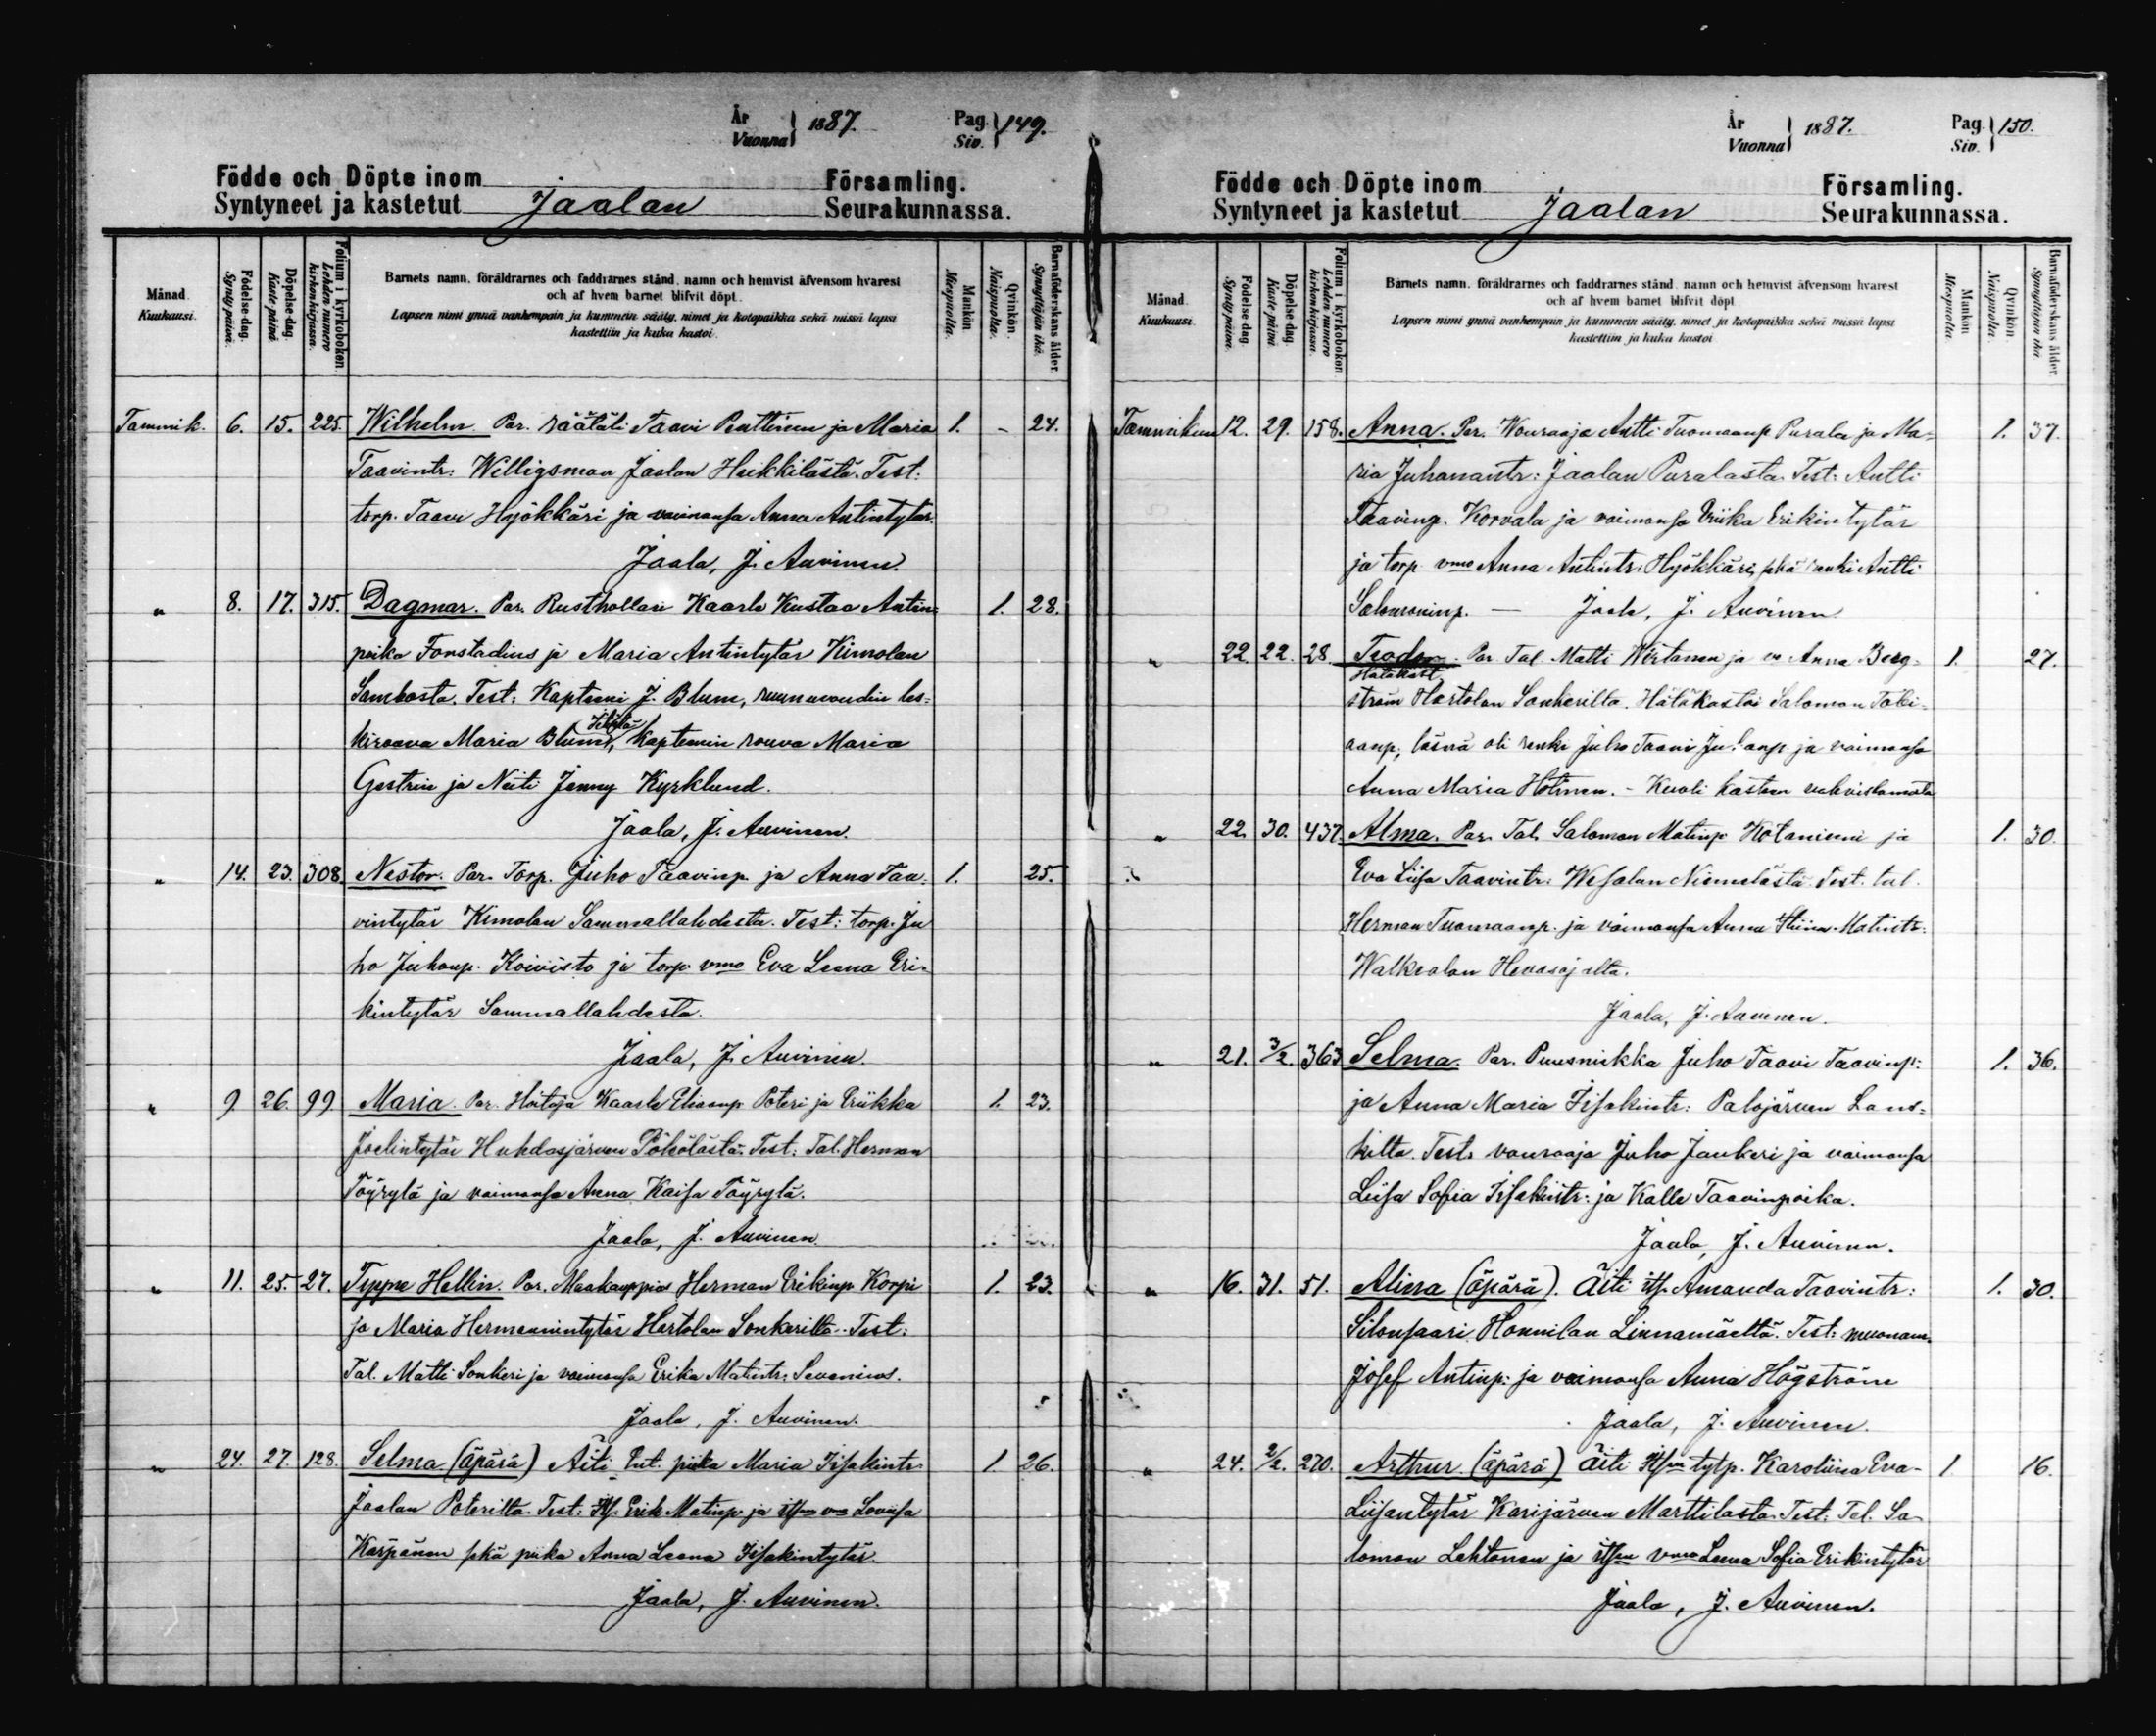 År
Vuonna } 1887. Pag. Siv. } 149.
Födde och Döpte inom Församling.
Syntyneet ja kastetut Jaalan Seurakunnassa.
Månad. Kuukausi.
Födelse-dag. Synty-päivä.
Döpelse-dag. Kaste-päivä.
Folium i kyrkoboken. Lehden numero kirkonkirjassa.
Barnets namn, föräldrarnes och faddrarnes stånd, namn och hemvist äfvensom hvarest
och af hvem barnet blifvit döpt.
Lapsen nimi ynnä vanhempain ja kummein sääty, nimet ja kotopaikka sekä missä lapsi
kastettiin ja kuka kastoi.
Mankön. Miespuolta.
Qvinkön. Naispuolta.
Barnaföderskans ålder. Synnyttäjän ikä.
Tammik. 6. 15. 225. Wilhelm. Par. räätäli Taavi Penttinen ja Maria 1. - 24.
Taavintr: Willigsman Jaalan Heikkilästä. Test:
torp. Taavi Hyökkäri ja vaimonsa Anna Antintytär.
Jaala, J. Auvinen.
" 8. 17. 315. Dagmar. Par. Rusthollari Kaarle Kustaa Antin- 1. 28.
poika Forstadius ja Maria Antintytär Kimolan
Sambosta. Test: Kapteeni J. Blum, ruununvoudin les-
kirouva Maria Blum, kapteenin rouva Maria
Gestrin ja Neiti Jenny Kyrklund.
Jaala, J. Auvinen.
" 14. 23. 308. Nestor. Par. Torp. Juho Taavinp. ja Anna Taa- 1. 25.
vintytär Kimolan Sammallahdesta. Test: torp. Ju
ho Juhonp. Koivisto ja torp. vmo Eva Leena Eri-
kintytär Sammallahdesta.
Jaala, J. Auvinen.
" 9. 26. 99. Maria. Par. Hoitaja Kaarle Eliaanp. Poteri ja Eriikka 1. 23.
Joelintytär Huhdasjärven Pöksölästä. Test: Tal. Herman
Töyrylä ja vaimonsa Anna Kaisa Töyrylä.
Jaala, J. Auvinen.
" 11. 25. 27. Tyyne Hellin. Par. Maakauppias Herman Erikinp. Korpi 1. 23.
ja Maria Hermanintytär Hartolan Sonkerilta. Test:
Tal. Matti Sonkeri ja vaimonsa Erika Matintr: Savenius.
Jaala, J. Auvinen.
" 24. 27. 128. Selma (äpärä) Äiti Ent. piika Maria Iisakintr. 1. 26.
Jaalan Poterilta. Test: Its. Erik Matinp. ja itsen vmo Loviisa
Karpänen sekä piika Anna Leena Iisakintytär.
Jaala, J. Auvinen.
År
Vuonna } 1887. Pag. Siv. } 150.
Födde och Döpte inom Församling.
Syntyneet ja kastetut Jaalan Seurakunnassa.
Månad. Kuukausi.
Födelse-dag. Synty-päivä.
Döpelse-dag. Kaste-päivä.
Folium i kyrkoboken. Lehden numero kirkonkirjassa.
Barnets namn, föräldrarnes och faddrarnes stånd, namn och hemvist äfvensom hvarest
och af hvem barnet blifvit döpt.
Lapsen nimi ynnä vanhempain ja kummein sääty, nimet ja kotopaikka sekä missä lapsi
kastettiin ja kuka kastoi.
Mankön. Miespuolta.
Qvinkön. Naispuolta.
Barnaföderskans ålder. Synnyttäjän ikä.
Tammikuu 12. 29. 158. Anna. Par. Wouraaja Antti Tuomaanp. Purala ja Ma- 1. 37.
ria Juhanantr: Jaalan Puralasta. Test: Antti
Taavinp. Korvala ja vaimonsa Eriika Erikintytär
ja torp. vmo Anna Antintr: Hyökkäri, sekä renki Antti
Salomoninp. — Jaala, J. Auvinen.
" 22. 22. 28. Teodor. Par. Tal. Matti Wirtanen ja v. Anna Berg- 1. 27.
Hätäkast.
ström Hartolan Sonkerilta. Hätäkastoi Salomon Tobi-
aanp., läsnä oli renki Juho Taavi Juhanp. ja vaimonsa
Anna Maria Hölttinen. - Kuoli kasteen vahvistamata
" 22. 30. 437. Alma. Par. Tal. Salomon Matinp. Kotaniemi ja 1. 30.
Eva Liisa Taavintr: Wesalan Niemelästä. Test. tal.
Herman Tuomaanp. ja vaimonsa Anna Stiina Matintr:
Walkealan Hevosojalta.
Jaala, J. Auvinen.
" 21. 3/2. 363 Selma. Par. Puusniekka Juho Taavi Taavinp: 1. 36.
ja Anna Maria Iisakintr: Palojärven Lans-
kilta. Test. vouraaja Juho Jaukeri ja vaimonsa
Liisa Sofia Iisakintr: ja Kalle Taavinpoika.
Jaala, J. Auvinen.
" 16. 31. 51. Alina (äpärä). Äiti its. Amanda Taavintr: 1. 30.
Silonsaari, Honnilan Linnamäeltä. Test: muonam.
Josef Antinp: ja vaimonsa Anna Högström
Jaala, J. Auvinen.
" 24. 2/2. 270. Arthur (äpärä) Äiti Itsen tytp. Karoliina Eva- 1. 16.
Liisantytär Karijärven Marttilasta. Test: Tal. Sa-
lomon Lehtonen ja itsen vmo Leena Sofia Erikintytär
Jaala, J. Auvinen.